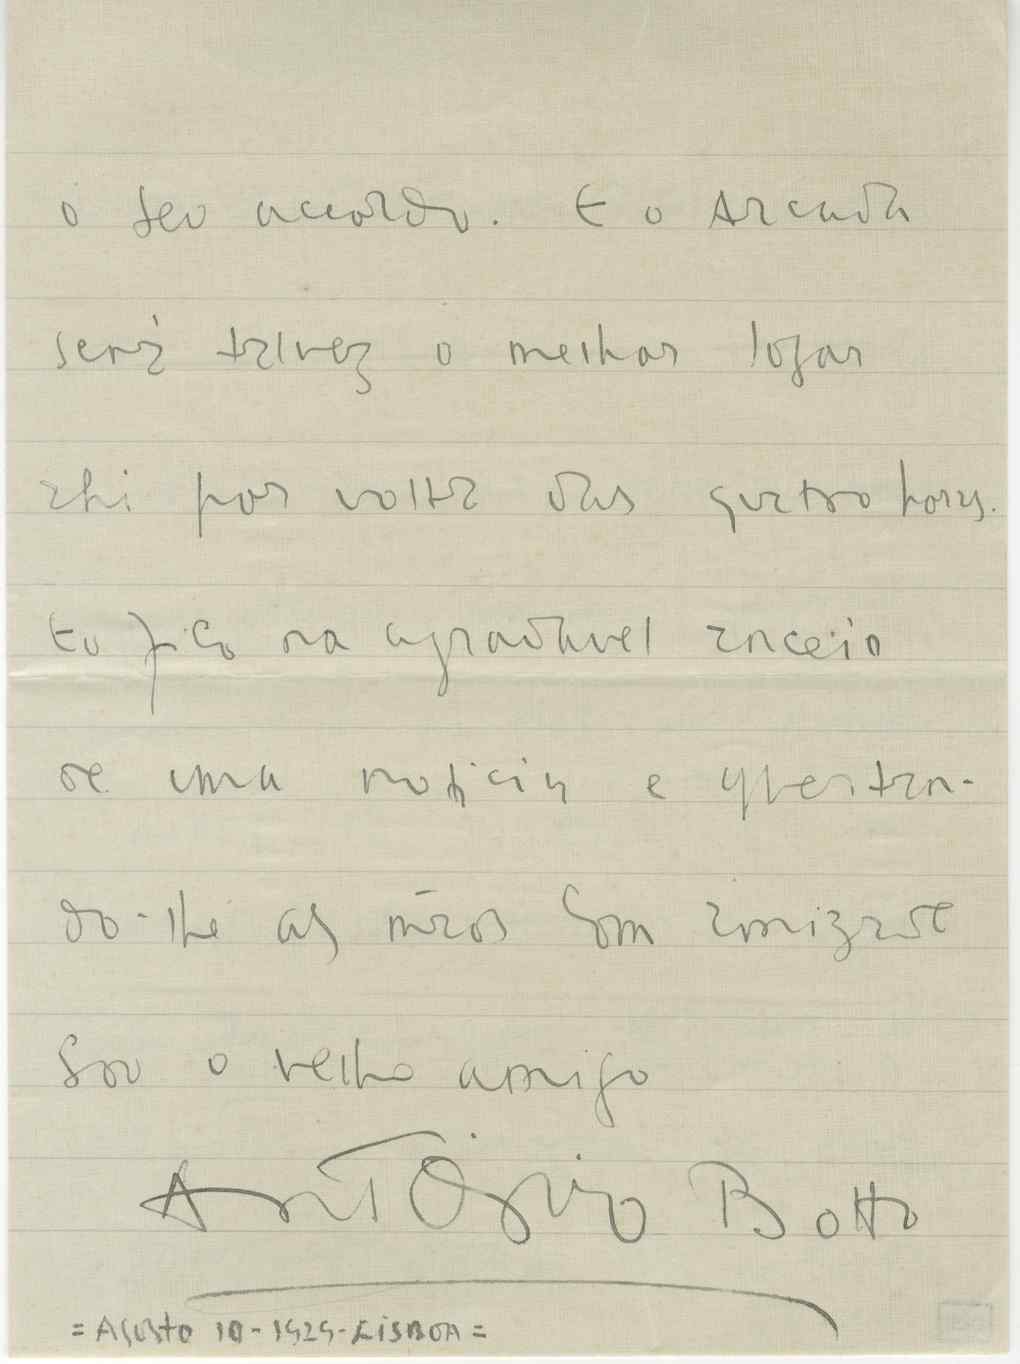 o seu accordo. E o Arcada
será talvez o melhor logar
ahi por volta das quatro horas.
Eu fico na agradavel anceio
de uma noticia e
do-lhe as mãos com amizade
Sou o velho amigo
António Botto
= Agosto 10-1929-LISBOA =